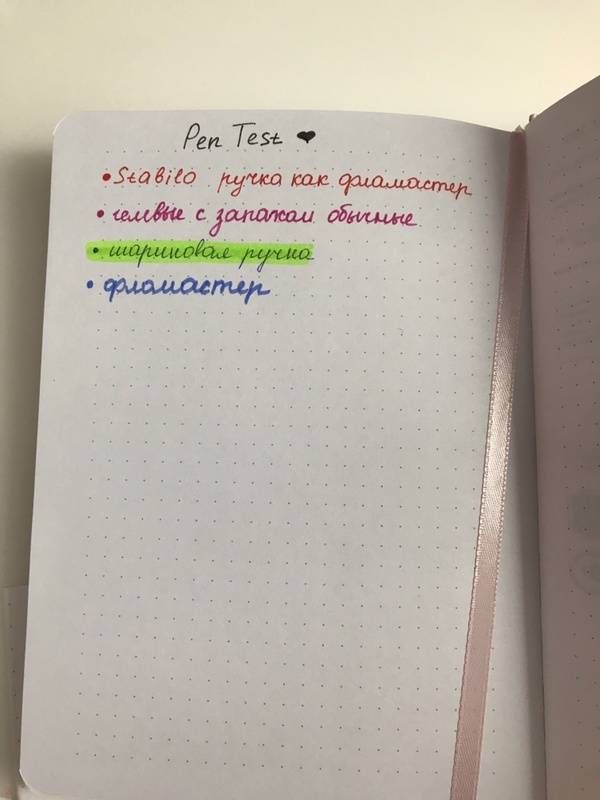 Pen Test ♥
• Stabilo ручка как фламастер
• гелвые с запахом обычные
• шариковая ручка
• фламастер